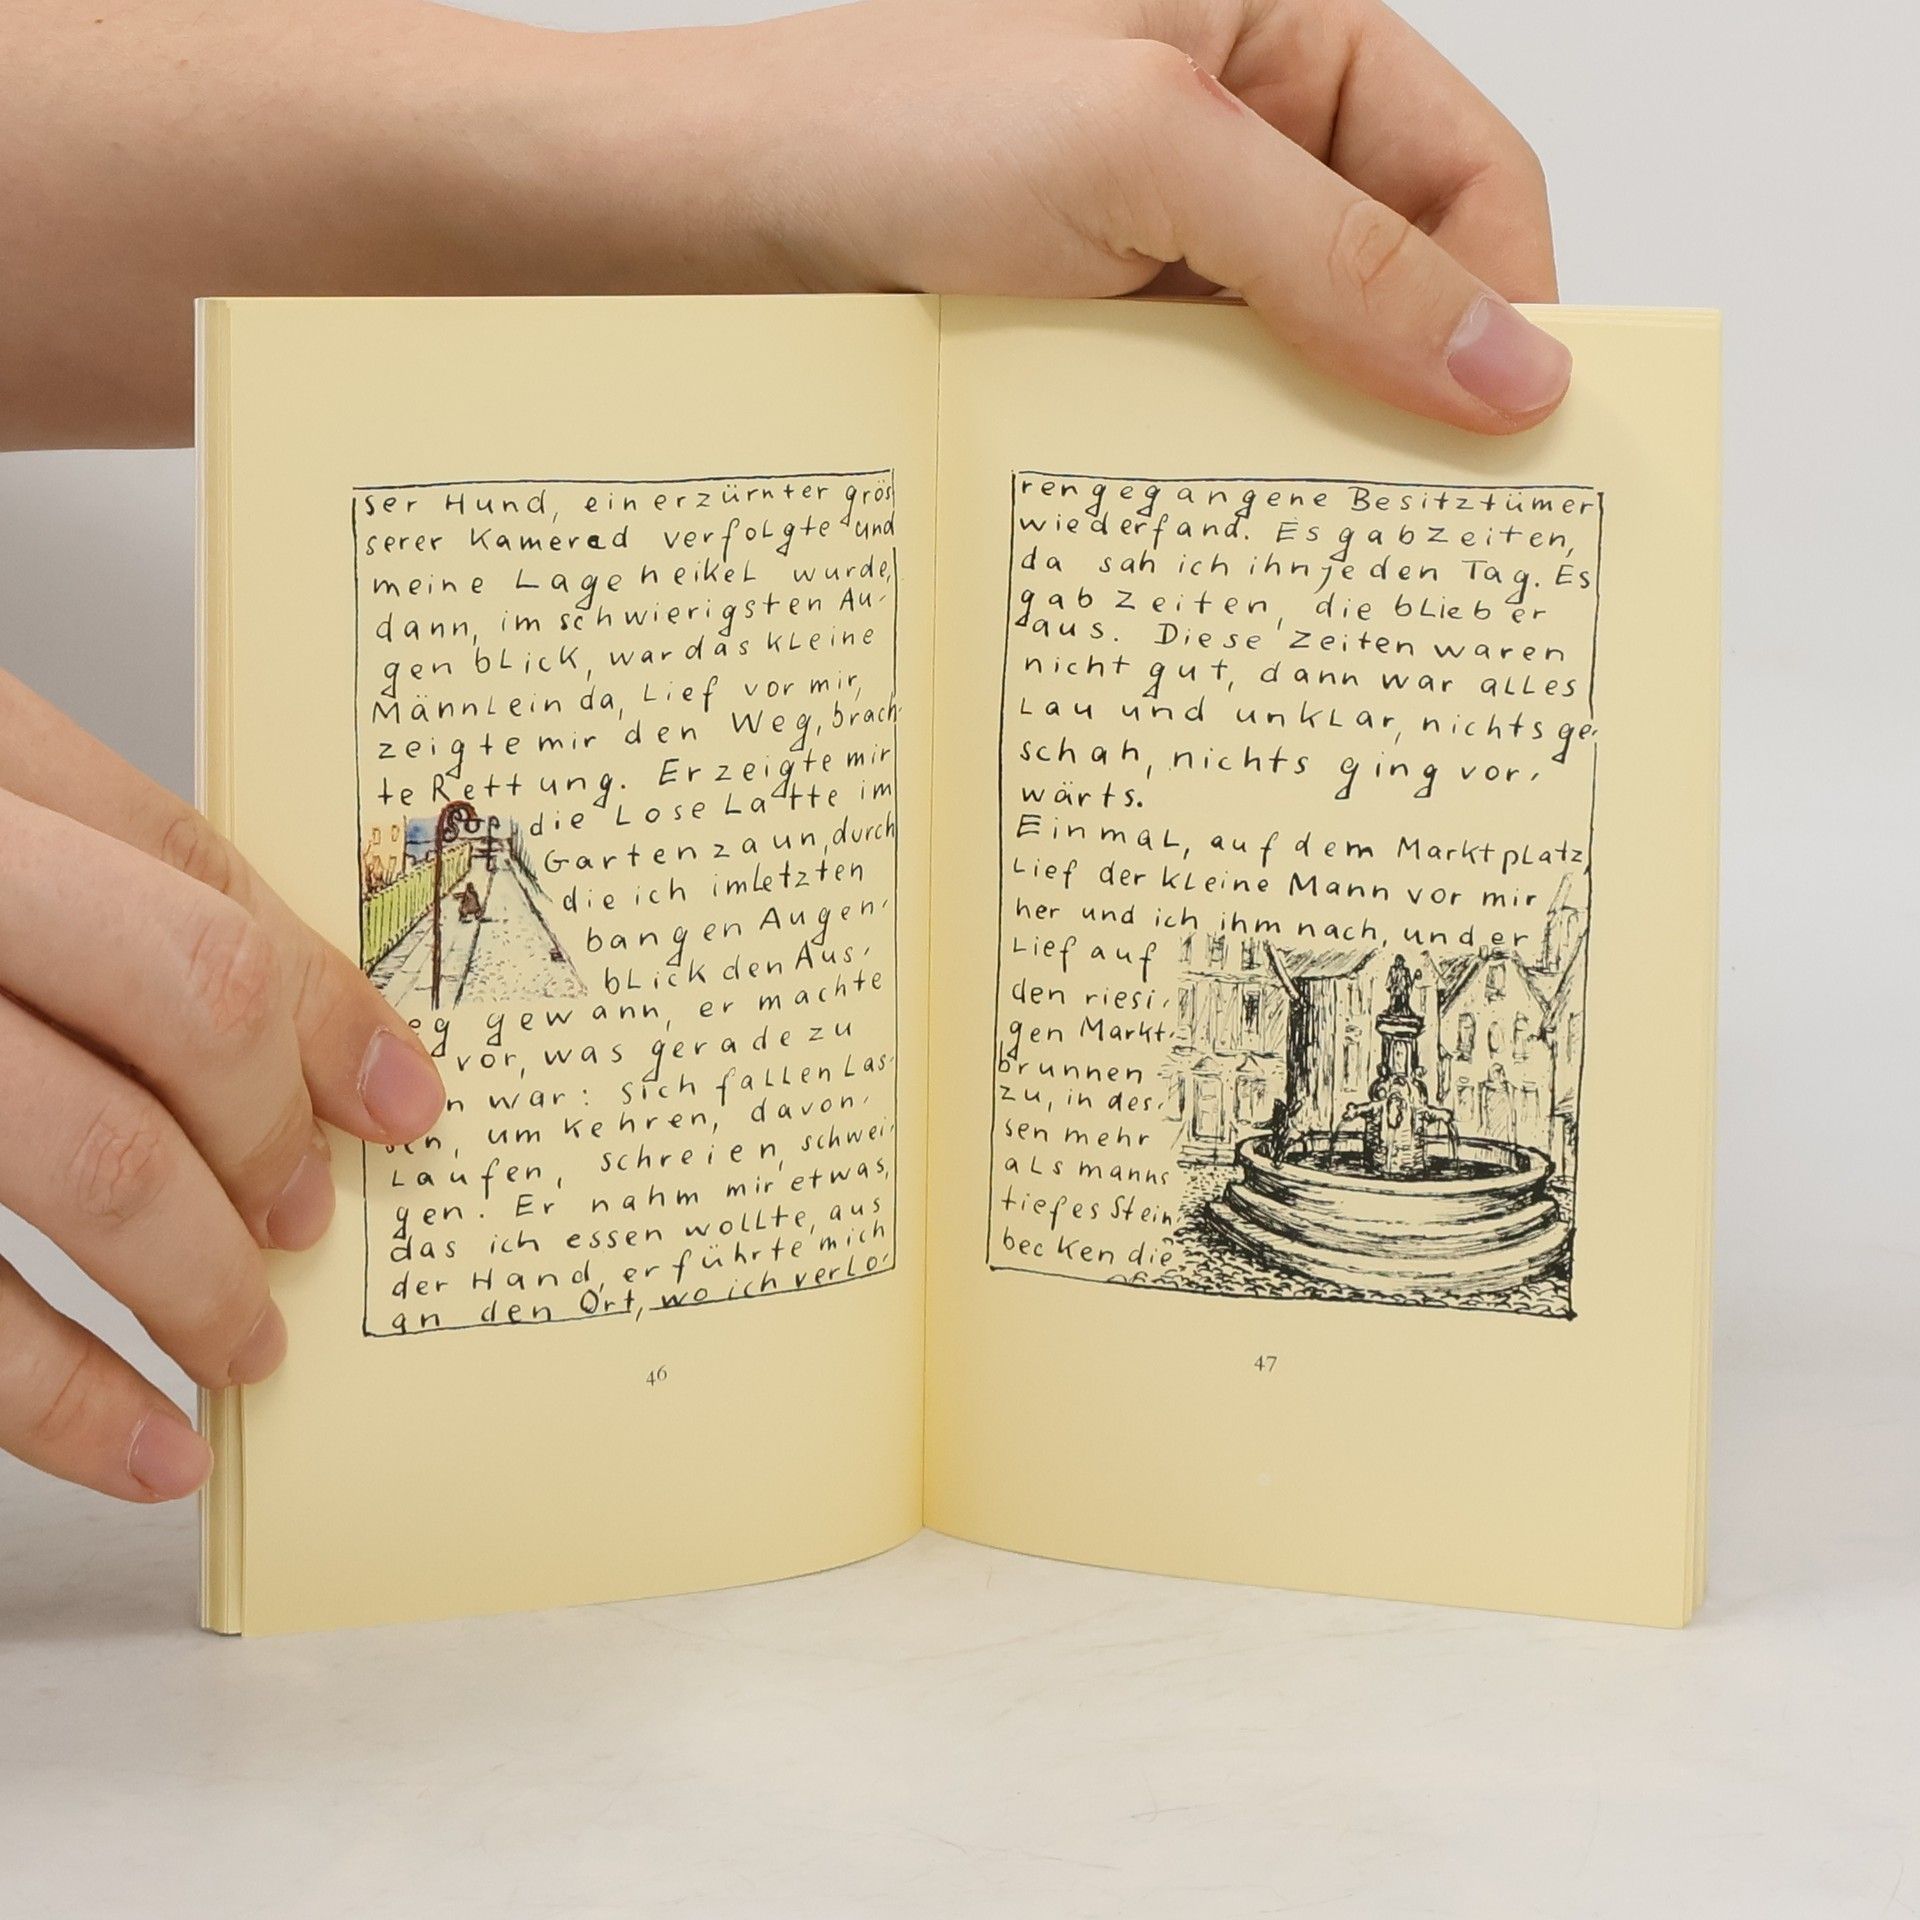 ser Hund, ein erzürnter grös
serer Kamerad verfolgte und
meine Lage heikel wurde,
dann, im schwierigsten Au-
genblick, war das kleine
Männlein da, lief vor mir,
zeigte mir den Weg, brach-
te Rettung. Er zeigte mir
die lose Latte im
Gartenzaun, durch
die ich im letzten
bangen Augen-
blick den Aus-
eg gewann, er machte
vor, was gerade zu
n war: sich fallen las-
sen, umkehren, davon-
laufen, schreien, schwei-
gen. Er nahm mir etwas,
das ich essen wollte, aus
der Hand, er führte mich
an den Ort, wo ich verlo-
46
rengegangene Besitztümer
wiederfand. Es gab Zeiten,
da sah ich ihn jeden Tag. Es
gab Zeiten, die blieb er
aus. Diese Zeiten waren
nicht gut, dann war alles
lau und unklar, nichts ge-
schah, nichts ging vor-
wärts.
Einmal, auf dem Marktplatz,
lief der kleine Mann vor mir
her und ich ihm nach, und er
lief auf
den riesi-
gen Markt-
brunnen
zu, in des-
sen mehr
als manns
tiefes Stein-
becken die
47